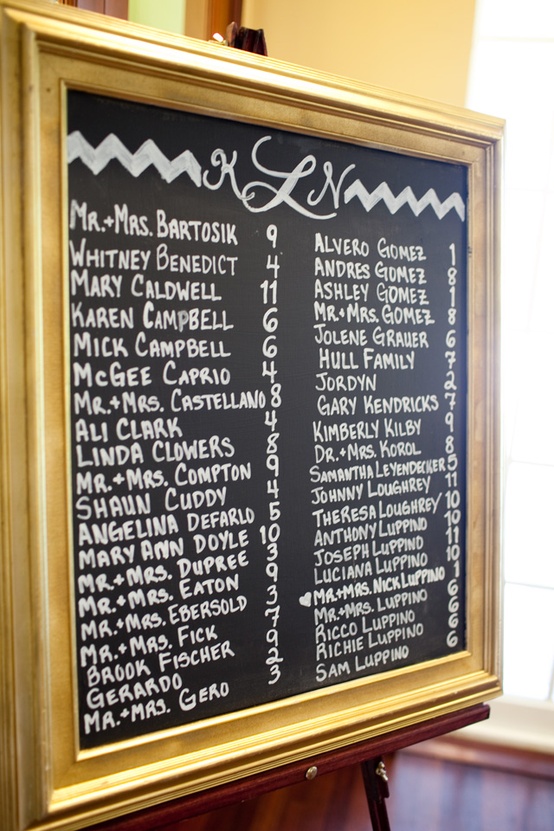 K L N
Mr.+Mrs. Bartosik 9
Whitney Benedict 4
Mary Caldwell 11
Karen Campbell 6
Mick Campbell 6
McGee Caprio 4
Mr.+Mrs. Castellano 8
Ali Clark 4
Linda Clowers 8
Mr.+Mrs. Compton 9
Shaun Cuddy 4
Angelina DeFarlo 5
Mary Ann Doyle 10
Mr.+Mrs. Dupree 3
Mr.+Mrs. Eaton 9
Mr.+Mrs. Ebersold 3
Mr.+Mrs. Fick 7
Brook Fischer 9
Gerardo 2
Mr.+Mrs. Gero 3
Alvero Gomez 1
Andres Gomez 8
Ashley Gomez 1
Mr.+Mrs. Gomez 8
Jolene Grauer 6
Hull Family 7
Jordyn 2
Gary Kendricks 7
Kimberly Kilby 9
Dr.+Mrs. Korol 8
Samantha Leyendecker 5
Johnny Loughrey 11
Theresa Loughrey 10
Anthony Luppino 10
Joseph Luppino 11
Luciana Luppino 10
♥Mr.+Mrs. Nick Luppino 1
Mr.+Mrs. Luppino 6
Ricco Luppino 6
Richie Luppino 6
Sam Luppino 6